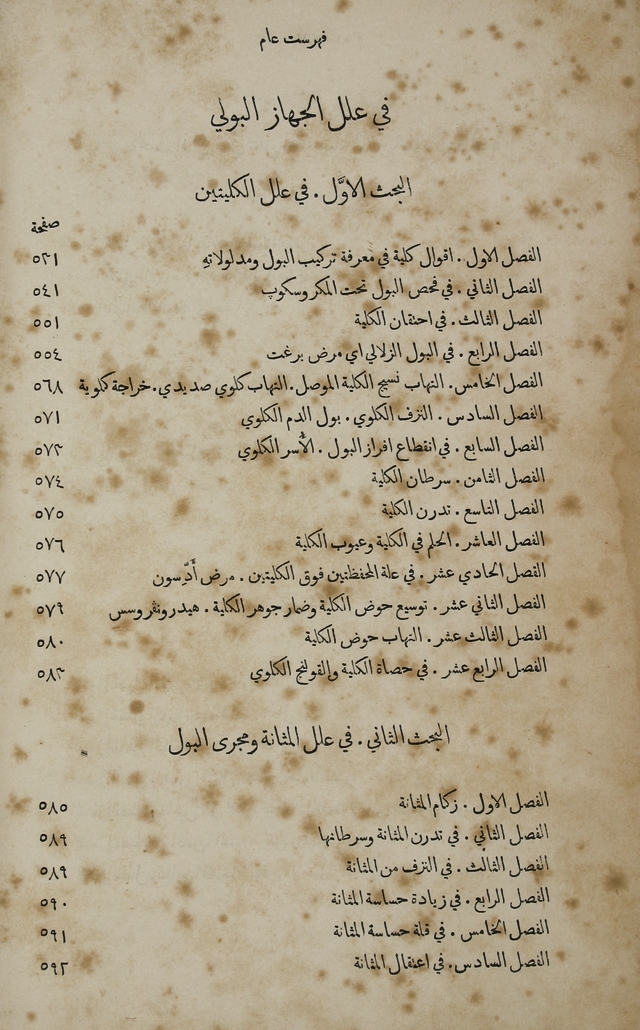 فهرست عام
في علل الجهاز البولي
البحث الاوَّل . في علل الكليتين
صفحة
الفصل الاول . اقوال كلية في معرفة تركيب البول ومدلولاتهِ ٥٣١
الفصل الثاني . في فحص البول تحت المكروسكوب ٥٤١
الفصل الثالث . في احتقان الكلية ٥٥١
الفصل الرابع . في البول الزلالي اي مرض برغت ٥٥٤
الفصل الخامس. التهاب نسيج الكلية الموصل. التهاب كلوي صديدي. خراجة كلوية ٥٦٨
الفصل السادس . النزف الكلوي . بول الدم الكلوي ٥٧١
الفصل السابع . في انقطاع افراز البول . الأسر الكلوي ٥٧٣
الفصل الثامن . سرطان الكلية ٥٧٤
الفصل التاسع . تدرن الكلية ٥٧٥
الفصل العاشر . الحلم في الكلية وعيوب الكلية ٥٧٦
الفصل الحادي عشر . في علة المحفظتين فوق الكليتين . مرض أدّسون ٥٧٧
الفصل الثاني عشر . توسيع حوض الكلية وضمار جوهر الكلية . هيدرونفروسس ٥٧٩
الفصل الثالث عشر . التهاب حوض الكلية ٥٨٠
الفصل الرابع عشر . في حصاة الكلية والقولنج الكلوي ٥٨٣
البحث الثاني . في علل المثانة ومجرى البول
الفصل الاول . زكام المثانة ٥٨٥
الفصل الثاني . في تدرن المثانة وسرطانها ٥٨٩
الفصل الثالث . في النزف من المثانة ٥٨٩
الفصل الرابع . في زيادة حساسة المثانة ٥٩٠
الفصل الخامس . في قلة حساسة المثانة ٥٩١
الفصل السادس. في اعتقال المثانة ٥٩٢